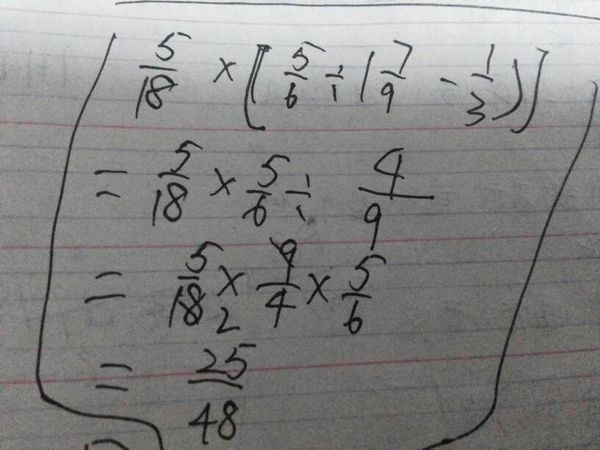 5/18 × [5/6 ÷ (7/9 - 1/3)]
= 5/18 × 5/6 ÷ 4/9
= 5/18 × 9/4 × 5/6
2
= 25/48